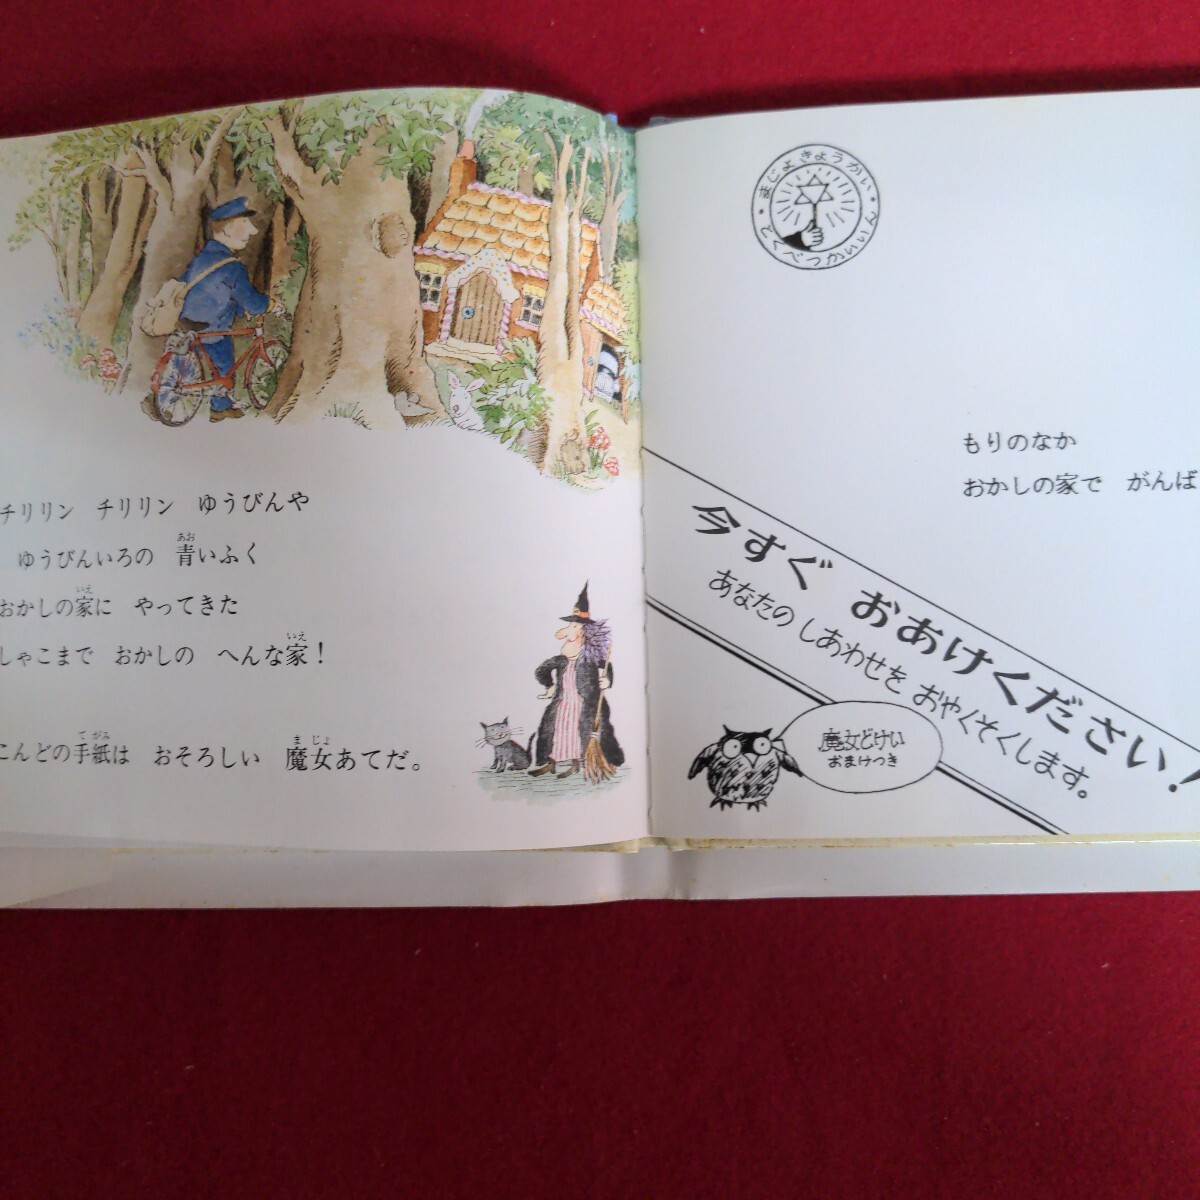 チリリン チリリン ゆうびんや
ゆうびんいろの 青いふく
おかしの家に やってきた
しゃこまで おかしの へんな家!
こんどの手紙は おそろしい 魔女あてだ。
まじょきょうかい
もりのなか
おかしの家で がんば
今すぐ おあけください!
あなたの しあわせを おやくそくします。
魔女どけい
おまけつき